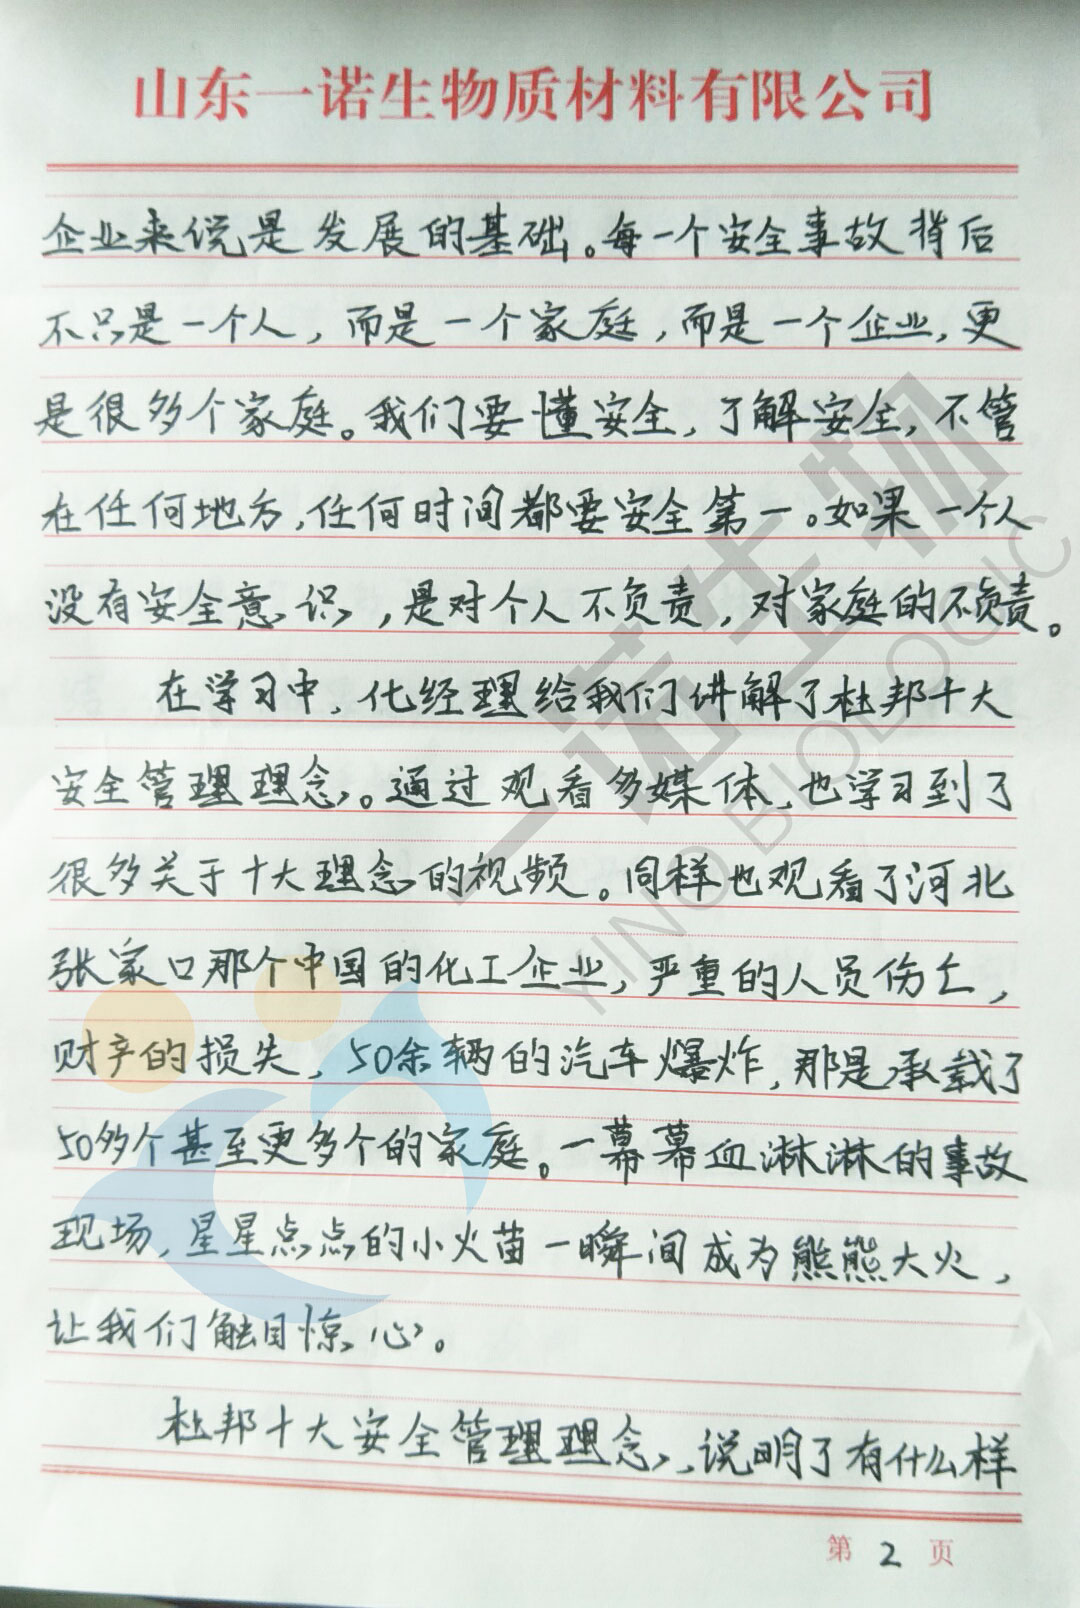 山东一诺生物质材料有限公司
企业来说是发展的基础。每一个安全事故背后
不只是一个人，而是一个家庭，而是一个企业，更
是很多个家庭。我们要懂安全，了解安全，不管
在任何地方，任何时间都要安全第一。如果一个人
没有安全意识，是对个人不负责，对家庭的不负责。
在学习中，化经理给我们讲解了杜邦十大
安全管理理念。通过观看多媒体，也学习到了
很多关于十大理念的视频。同样也观看了河北
张家口那个中国的化工企业，严重的人员伤亡，
财产的损失，50余辆的汽车爆炸，那是承载了
50多个甚至更多个的家庭。一幕幕血淋淋的事故
现场，星星点点的小火苗一瞬间成为熊熊大火，
让我们触目惊心。
杜邦十大安全管理理念，说明了有什么样
第 2 页
一诺生物
YINO BIOLOGIC